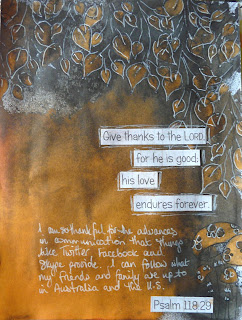 Give thanks to the LORD,
for he is good;
his love
endures forever.
I am so thankful for the advances
in communication that things
like Twitter, Facebook and
Skype provide. I can follow what
my friends and family are up to
in Australia and the U.S.
Psalm 118:29